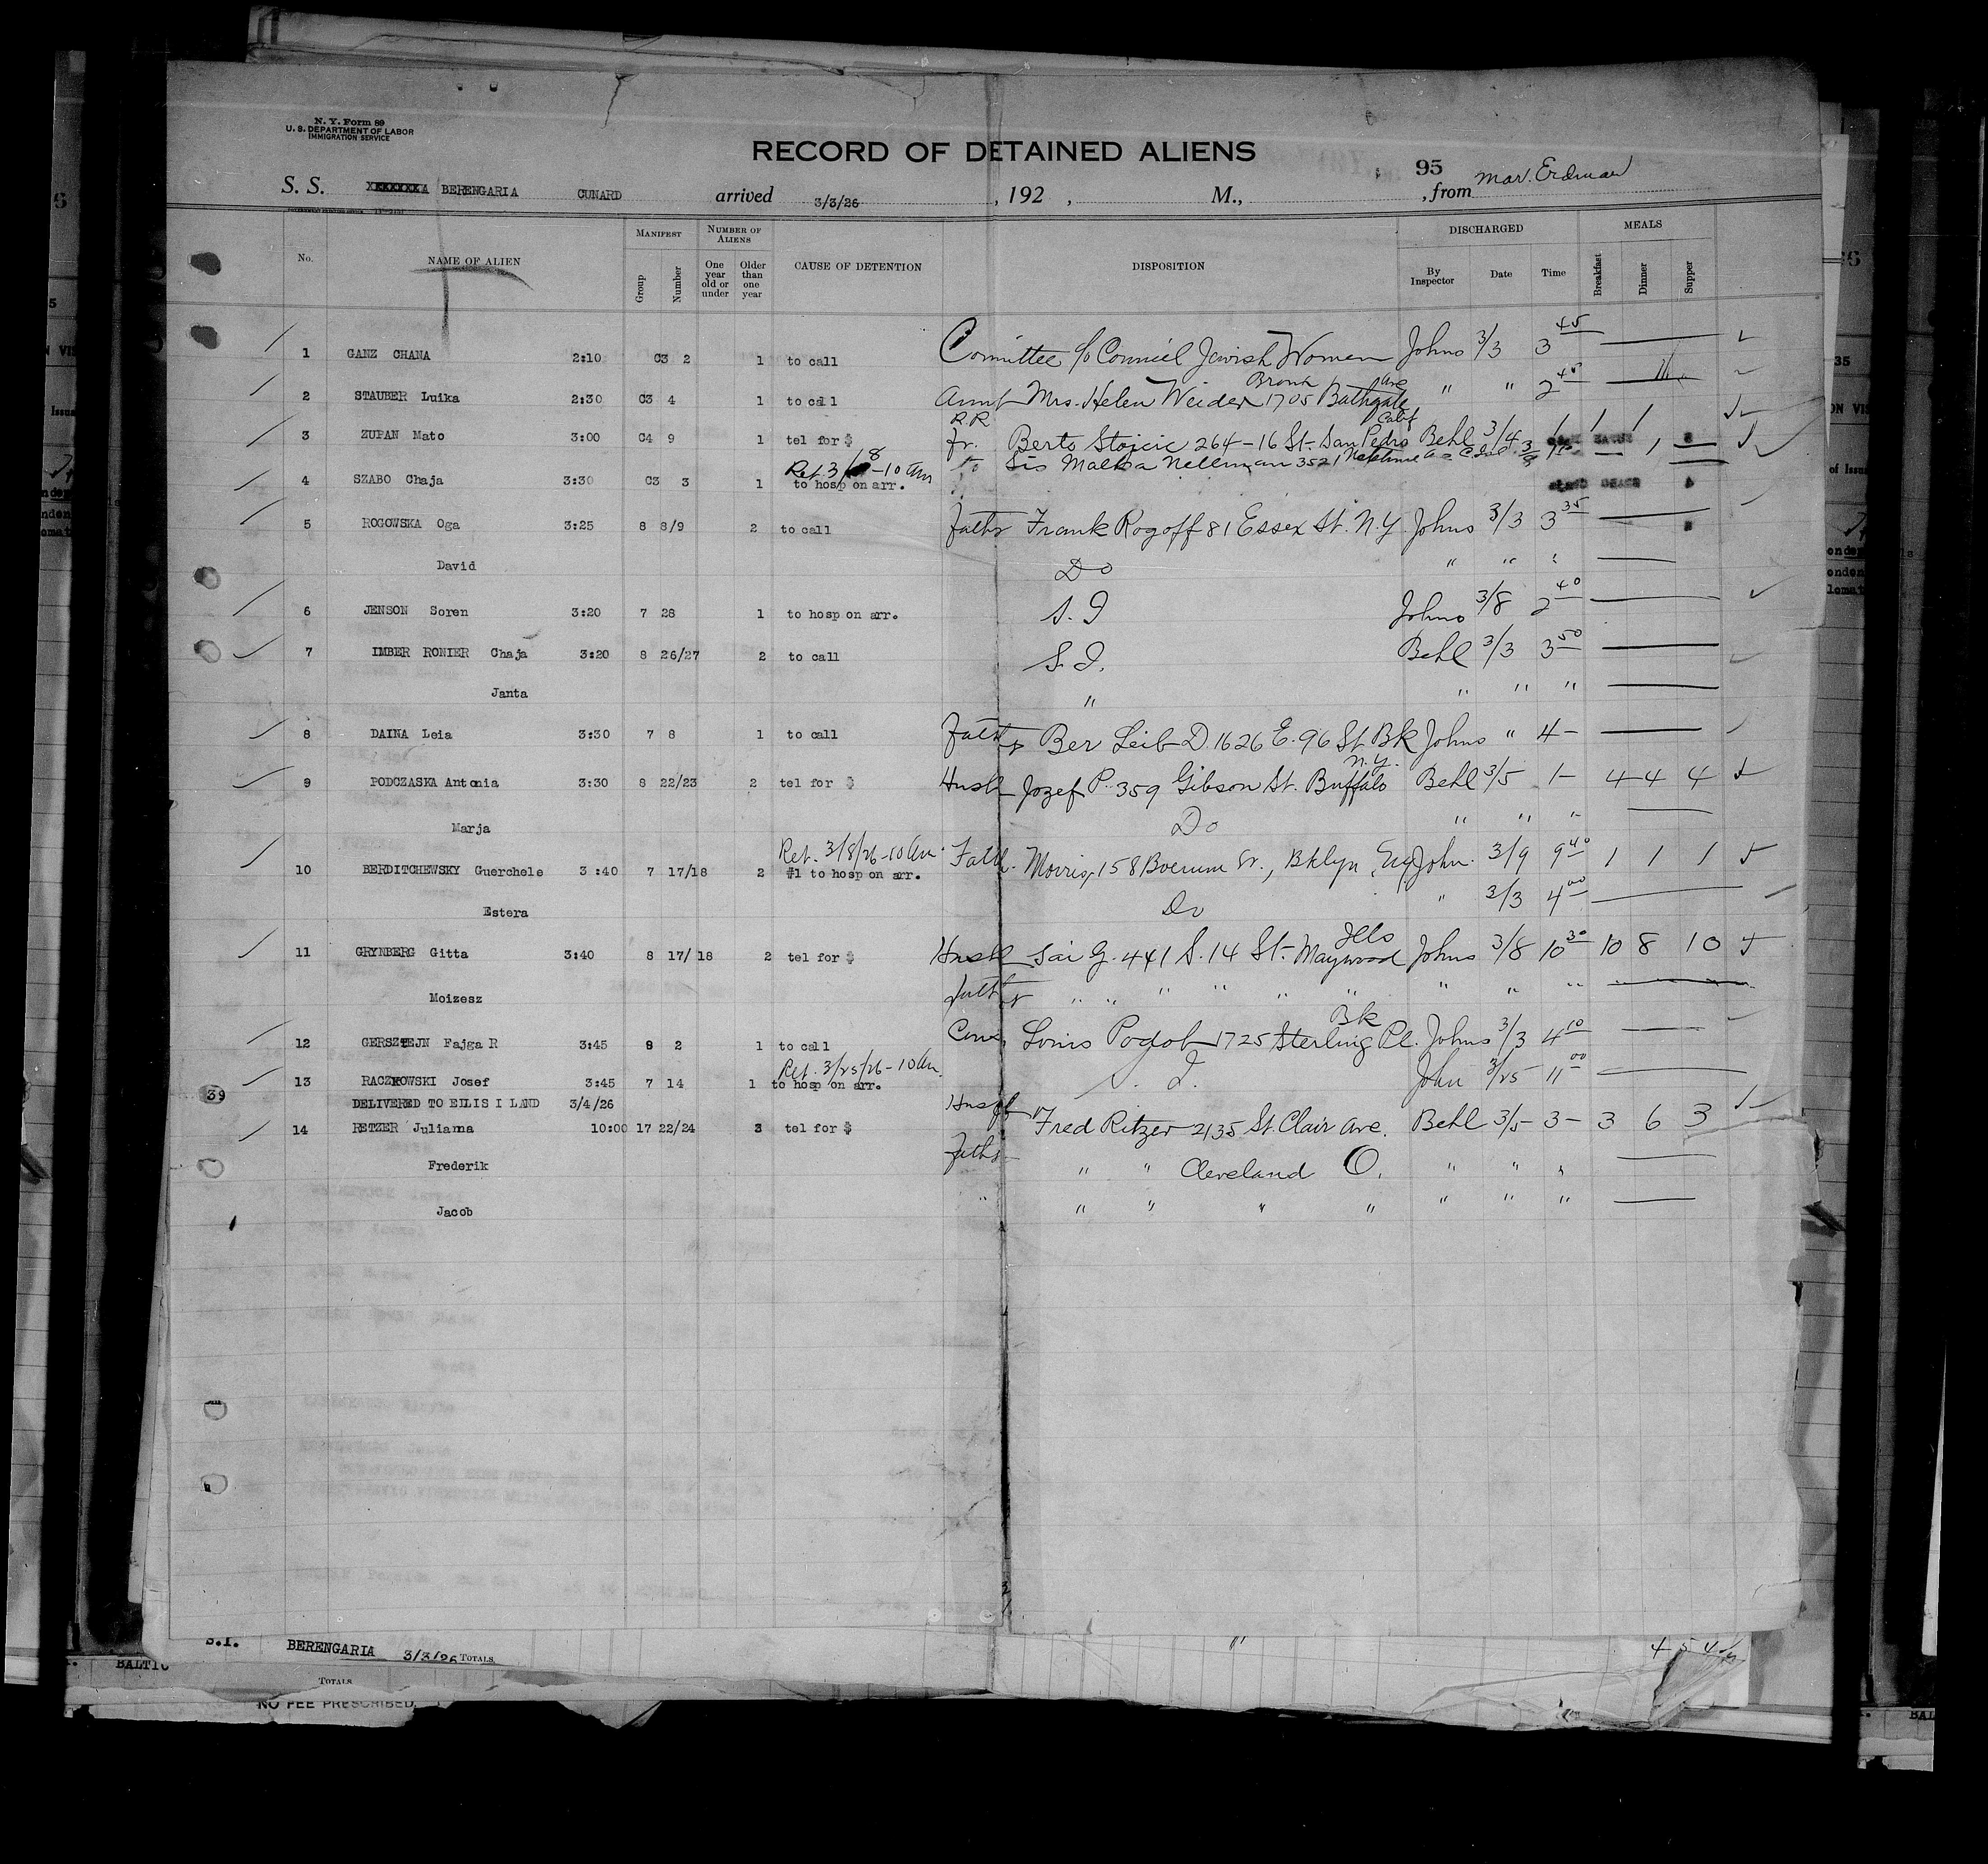 N. Y. Form 89
U. S. DEPARTMENT OF LABOR
IMMIGRATION SERVICE
RECORD OF DETAINED ALIENS
95
S. S. BERENGARIA CUNARD arrived 3/3/26, 192 , M., , from Mar. Erdman
No. NAME OF ALIEN MANIFEST Group Number NUMBER OF ALIENS One year old or under Older than one year CAUSE OF DETENTION DISPOSITION DISCHARGED By Inspector Date Time MEALS Breakfast Dinner Supper
1 GANZ CHANA 2:10 C3 2 1 to call Committee c/o Council Jewish Women Johns 3/3 3 45
2 STAUBER Luika 2:30 C3 4 1 to call Aunt Mrs. Helen Weider 1705 Bathgate Ave Bronx " " 2 45
3 ZUPAN Mato 3:00 C4 9 1 tel for $ R.R fr. Berto Stojcic 264-16 St. San Pedro Calif Behl 3/4
4 SZABO Chaja 3:30 C3 3 1 to hosp on arr. Ret 3/8-10 am to Sis Nellman 3521 Neptune
5 ROGOWSKA Oga 3:25 8 8/9 2 to call father Frank Rogoff 81 Essex St. N.Y. Johns 3/3 3 35
David Do " " "
6 JENSON Soren 3:20 7 28 1 to hosp on arr. S.I Johns 3/8 2 40
7 IMBER RONIER Chaja 3:20 8 26/27 2 to call S.I. Behl 3/3 3 50
Janta " " " "
8 DAINA Leia 3:30 7 8 1 to call Father Ber Leib D. 1626 E. 96 St Bk Johns " 4-
9 PODCZASKA Antonia 3:30 8 22/23 2 tel for $ Husb Jozef P. 359 Gibson St. Buffalo N.Y. Behl 3/5 1- 4 4 4
Marja Do " " "
10 BERDITCHEWSKY Guerchele 3:40 7 17/18 2 Ret. 3/8/26-10 am. #1 to hosp on arr. Fath. Morris, 158 Boerum St., Bklyn, John. 3/9 9 40 1 1 1
Estera Do " 3/3 4 00
11 GRYNBERG Gitta 3:40 8 17/18 2 tel for $ Husb Sai G. 441 S. 14 St. Maywood Ills Johns 3/8 10 30 10 8 10
Moizesz father " " " " " " " " "
12 GERSZTEJN Fajga R 3:45 8 2 1 to call Cous. Louis Podob 1725 Sterling Pl. Bk Johns 3/3 4 10
13 RACZKOWSKI Josef 3:45 7 14 1 Ret. 3/25/26-10 am. to hosp on arr. S. I. John 3/25 11 00
39 DELIVERED TO ELLIS I LAND 3/4/26
14 RETZER Julianna 10:00 17 22/24 3 tel for $ Husb Fred Ritzer 2135 St Clair Ave. Behl 3/5 3- 3 6 3
Frederik Father " " Cleveland O. " " "
Jacob " " " " " " " "
S.I. BERENGARIA 3/3/26 TOTALS
TOTALS
NO FEE PRESCRIBED.